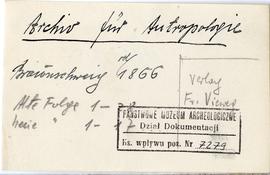 Archiv für Antropologie
Braunschweig 1866
Verlag
Fr. Vieweg
Alte Folge 1 - 28
Neue " 1 -
PAŃSTWOWE MUZEUM ARCHEOLOGICZNE
Dział Dokumentacji
Ks. wpływu pot. Nr 7279